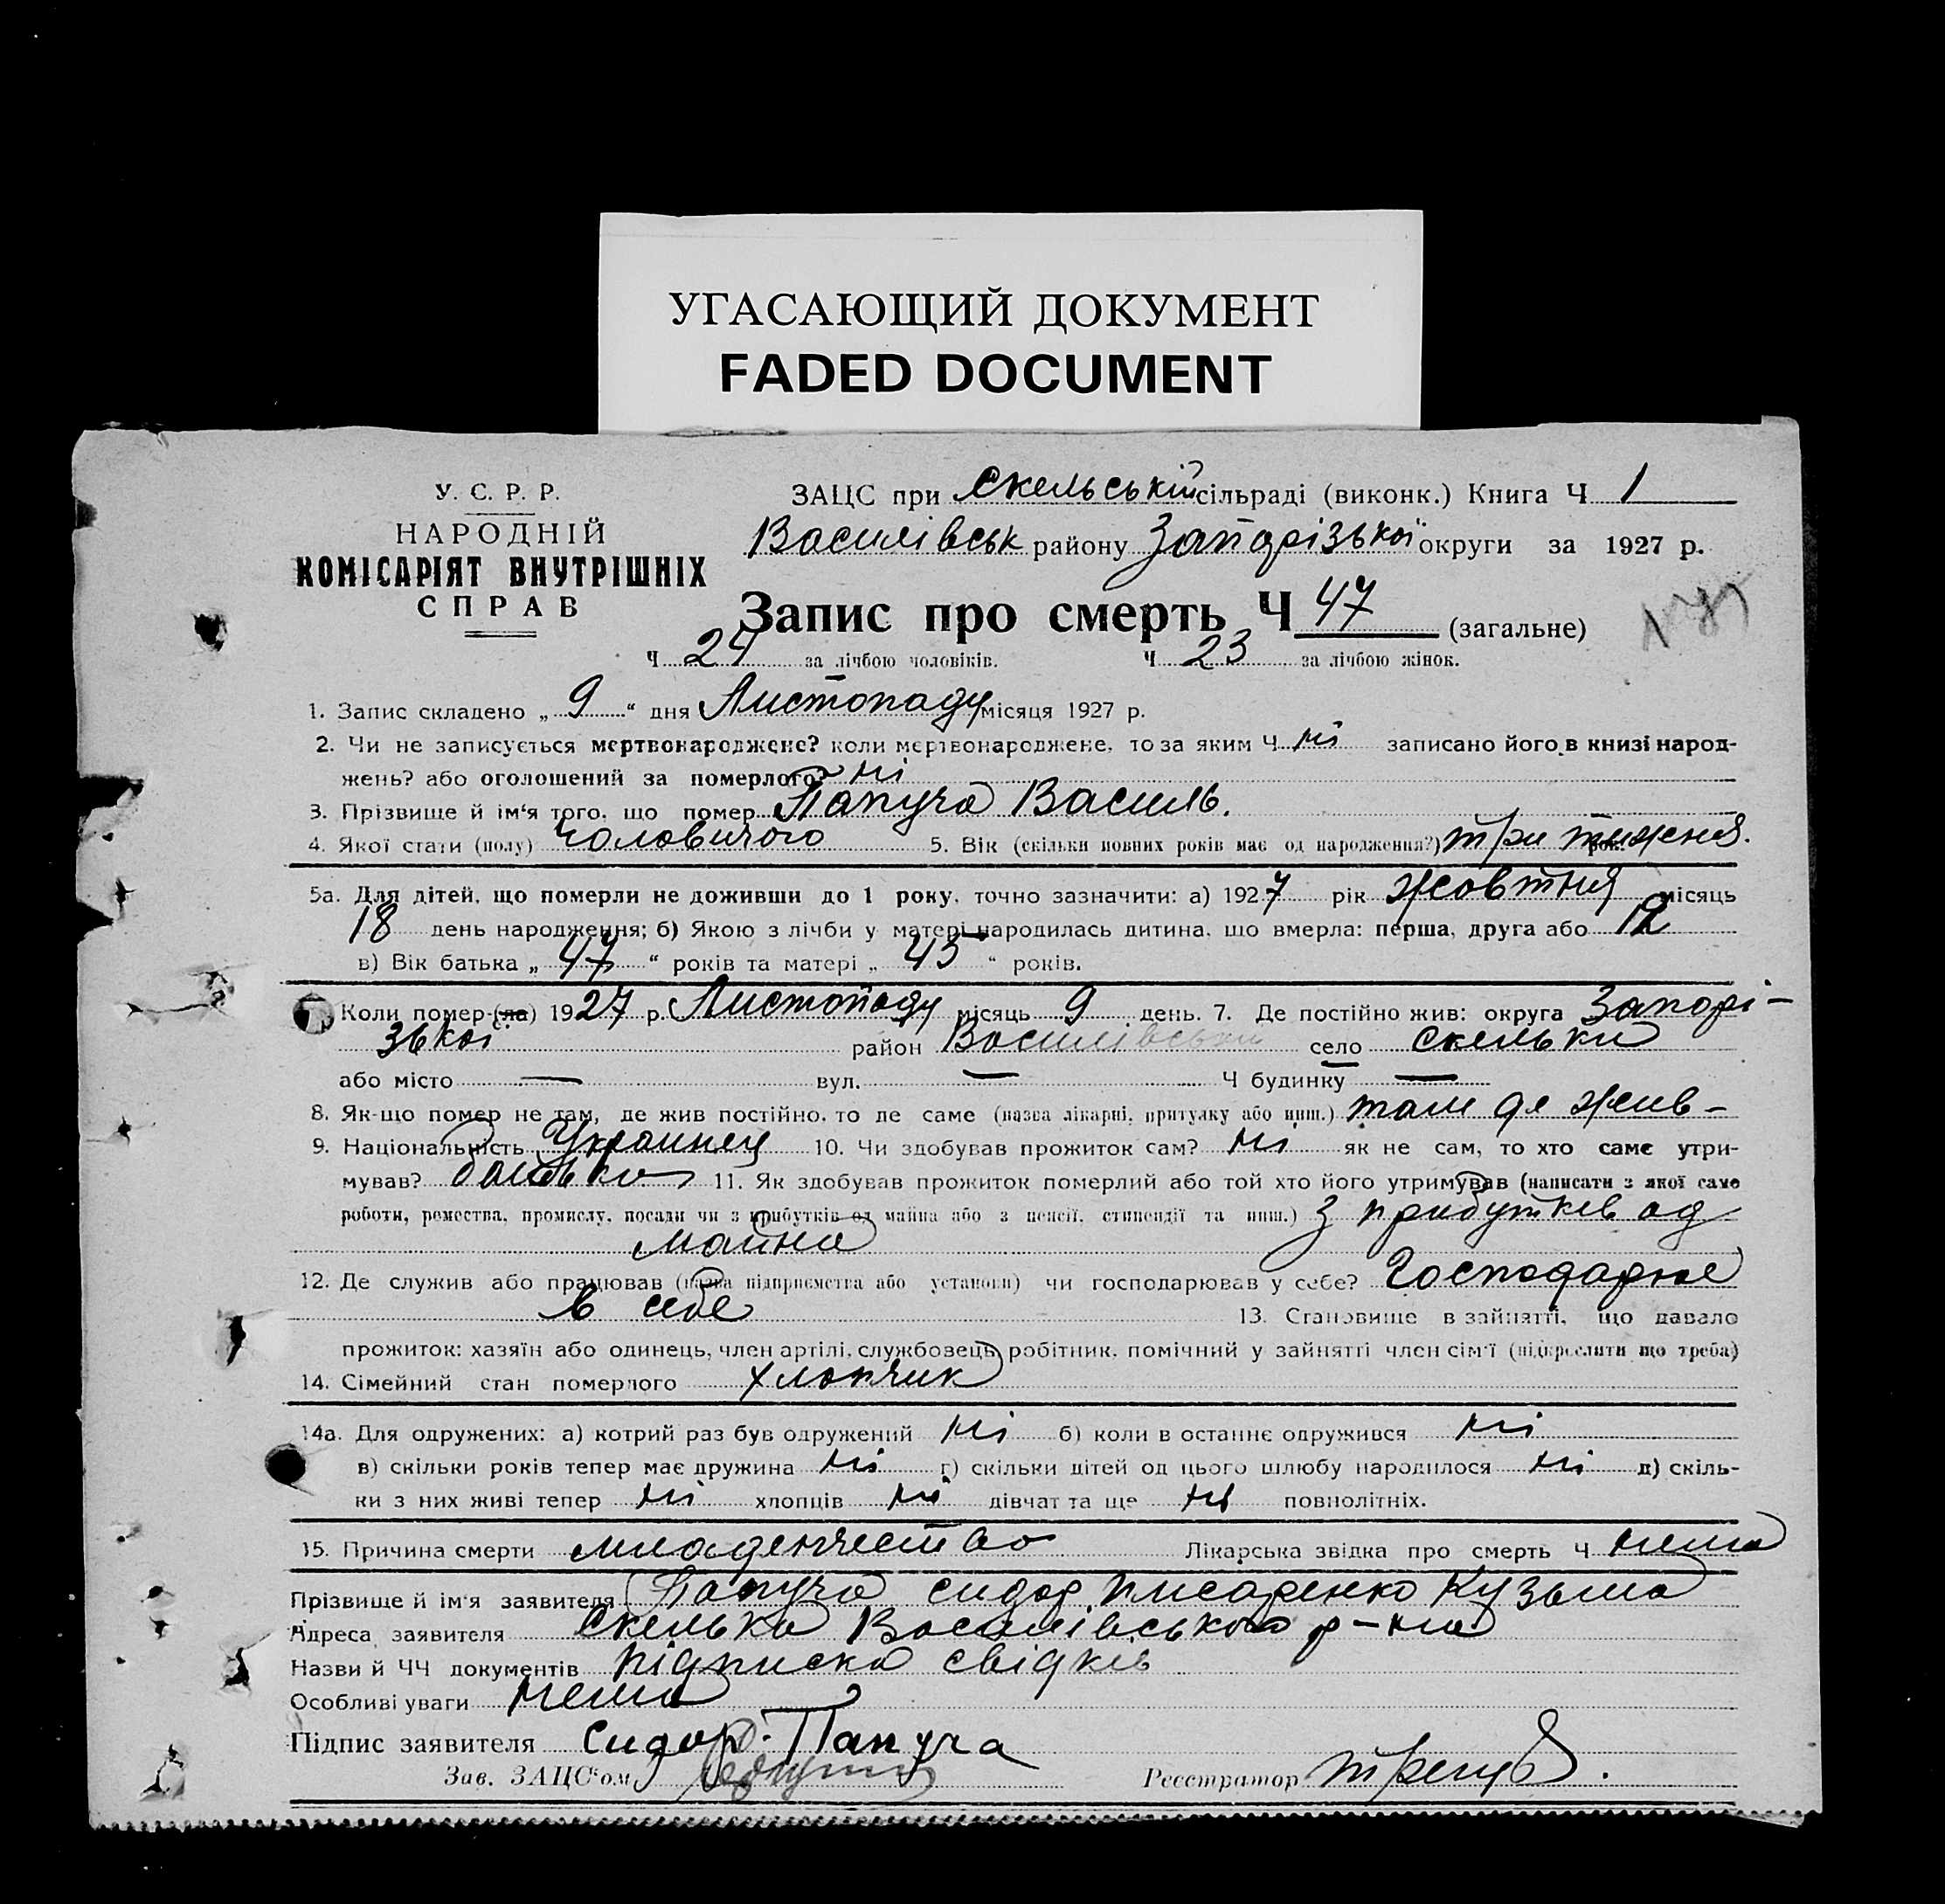 УГАСАЮЩИЙ ДОКУМЕНТ
FADED DOCUMENT
У. С. Р. Р.
НАРОДНІЙ
КОМІСАРІЯТ ВНУТРІШНІХ
СПРАВ
ЗАЦС при Скельській сільраді (виконк.) Книга Ч 1
Василівськ району Запорізької округи за 1927 р.
Запис про смерть Ч 47 (загальне)
Ч 24 за лічбою чоловіків. Ч 23 за лічбою жінок.
1. Запис складено „ 9 “ дня Листопаду місяця 1927 р.
2. Чи не записується мертвонароджене? коли мертвонароджене, то за яким Ч ні записано його в книзі народ-
жень? або оголошений за померлого? ні
3. Прізвище й ім‘я того, що помер Папуча Василь.
4. Якої стати (полу) чоловичого 5. Вік (скільки повних років має од народження?) три тижня.
5а. Для дітей, що померли не доживши до 1 року, точно зазначити: а) 1927 рік жовтня місяць
18 день народження; б) Якою з лічби у матері народилась дитина, що вмерла: перша, друга або 12
в) Вік батька „ 47 “ років та матері „ 45 “ років.
Коли помер-(ла) 1927 р. Листопаду місяць 9 день. 7. Де постійно жив: округа Запорі-
зької район Василівський село Скельки
або місто — вул. — Ч будинку —
8. Як-що помер не там, де жив постійно, то де саме (назва лікарні, притулку або инш.) там де жив –
9. Національність Украинец 10. Чи здобував прожиток сам? ні як не сам, то хто саме утри-
мував? батько 11. Як здобував прожиток померлий або той хто його утримував (написати з якої саме
роботи, ремества, промислу, посади чи з прибутків од майна або з пенсії, стипендії та инш.) З прибутків од
майна
12. Де служив або працював (назва підприємства або установи) чи господарював у себе? Господарює
в себе 13. Становище в зайнятті, що давало
прожиток: хазяїн або одинець, член артілі, службовець, робітник, помічний у зайнятті член сім‘ї (підкреслити що треба)
14. Сімейний стан померлого хлопчик
14а. Для одружених: а) котрий раз був одружений ні б) коли в останнє одружився ні
в) скільки років тепер має дружина ні г) скільки дітей од цього шлюбу народилося ні д) скіль-
ки з них живі тепер ні хлопців ні дівчат та ще ні повнолітніх.
15. Причина смерти младенчество Лікарська звідка про смерть Ч нема
Прізвище й ім‘я заявителя Папуча Сидор, Писаренко Кузьма
Адреса заявителя Скелька Василівського р-на
Назви й ЧЧ документів підписка свідків
Особливі уваги нема
Підпис заявителя Сидор Папуча
Зав. ЗАЦС‘ом
Реєстратор